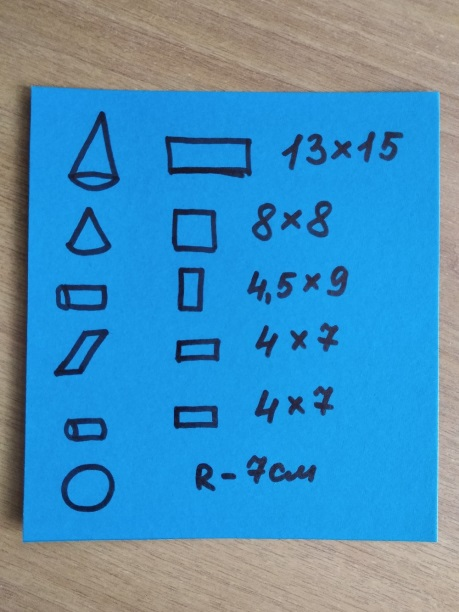 13×15
8×8
4,5×9
4×7
4×7
R-7см